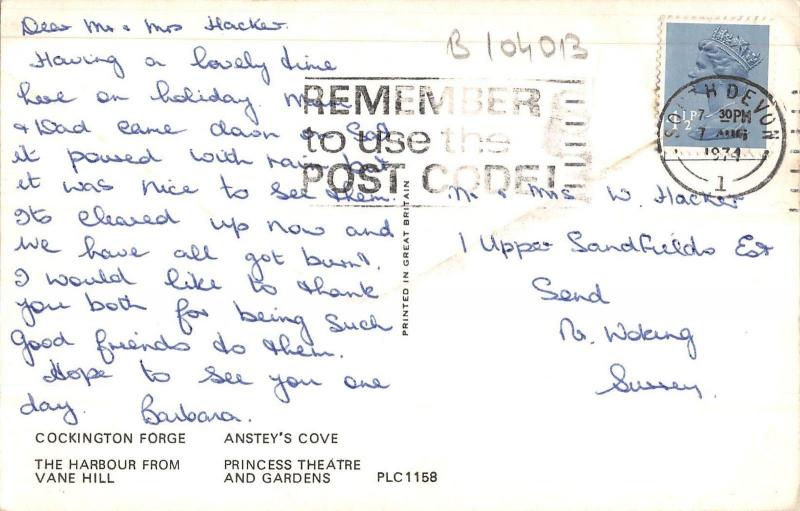 Dear Mr & Mrs Hacker.
Having a lovely time
here on holiday. Mum
& Dad came down on Sat
it poured with rain but
it was nice to see them.
Its cleared up now and
we have all got burnt.
I would like to thank
you both for being such
Good friends to them.
Hope to see you one
day. Barbara.
COCKINGTON FORGE ANSTEY'S COVE
THE HARBOUR FROM VANE HILL PRINCESS THEATRE AND GARDENS PLC1158
PRINTED IN GREAT BRITAIN
B 104013
REMEMBER
to use the
POST CODE!
1½P
SOUTH DEVON
7 30PM
7 AUG
1974
1
Mr & Mrs W. Hacker
1 Upper Sandfields Est
Send
Nr. Woking
Surrey.